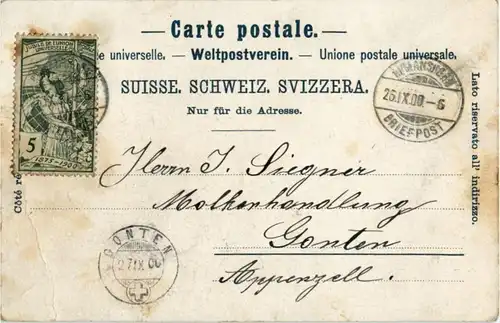 Carte postale.
e universelle. — Weltpostverein. — Unione postale universale.
SUISSE. SCHWEIZ. SVIZZERA.
Nur für die Adresse.
Côté ré
Lato riservato all' indirizzo.
5
BRIEFPOST
26.IX.00.-6
Herrn J. Siegner
Molkenhandlung
Gonten
Appenzell.
GONTEN
27.IX.00